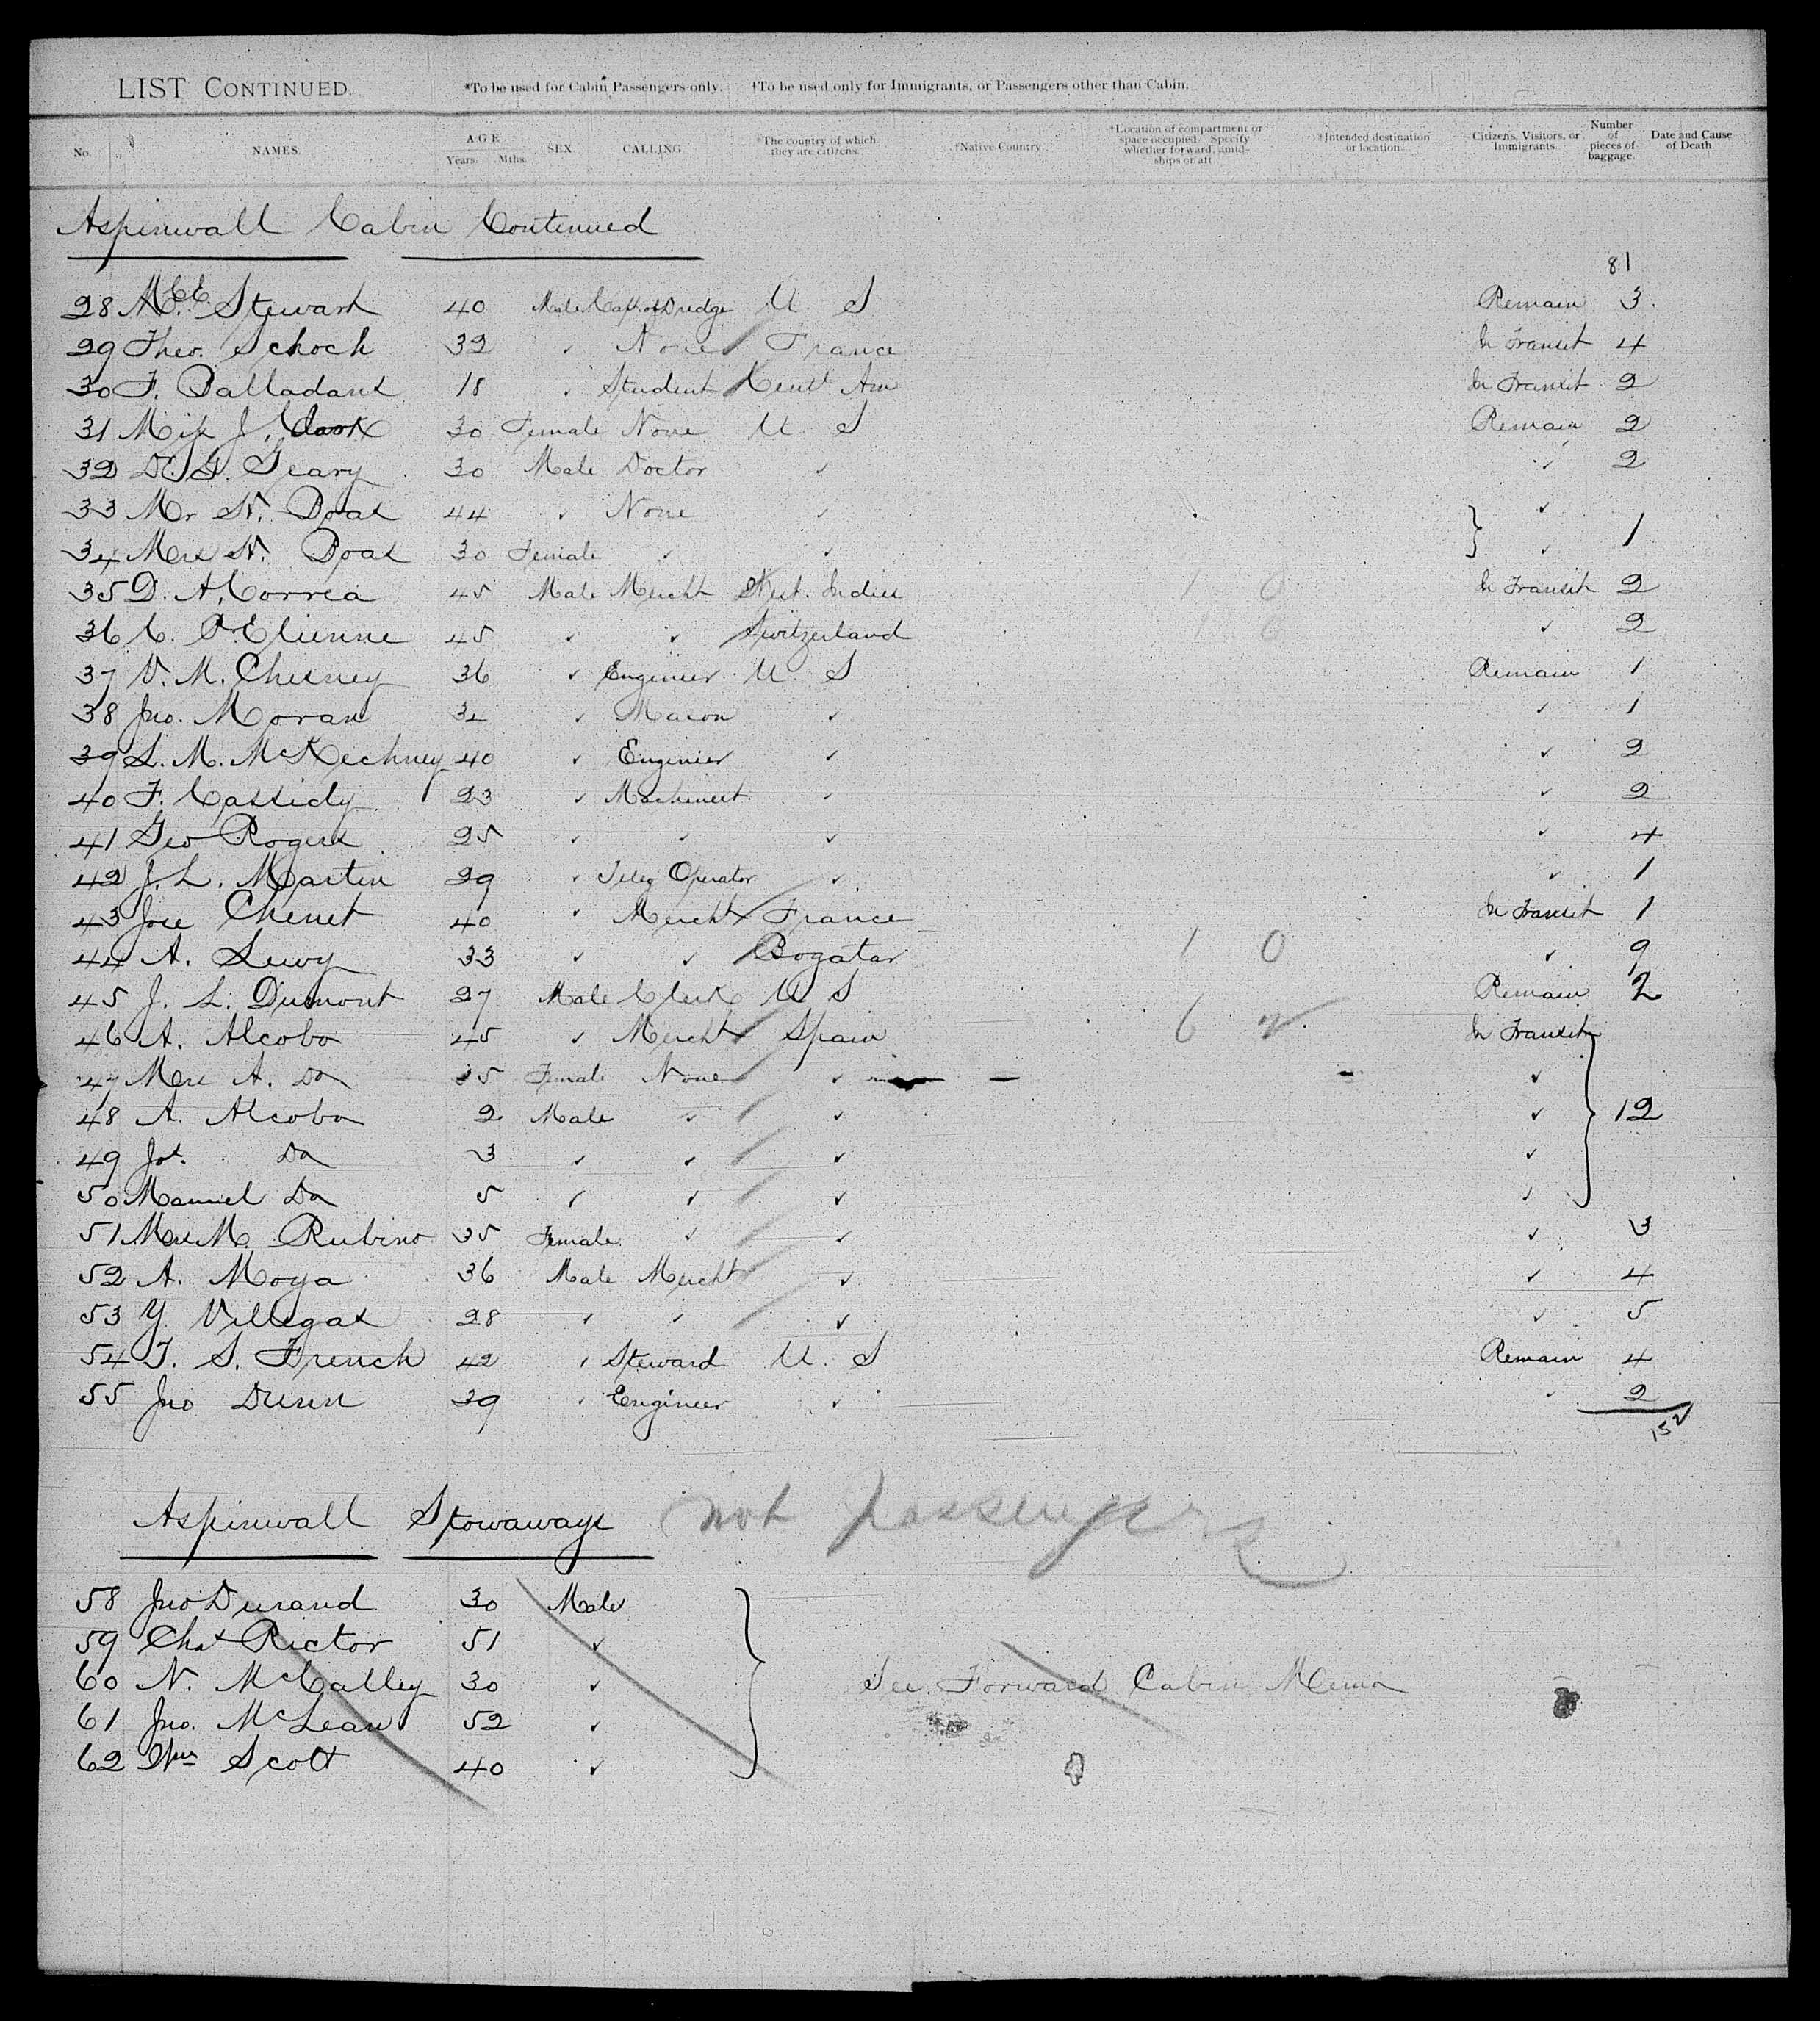 LIST CONTINUED. *To be used for Cabin Passengers only. †To be used only for Immigrants, or Passengers other than Cabin.
No. NAMES. AGE Years. Mths. SEX CALLING. *The country of which they are citizens. †Native Country. †Location of compartment or space occupied. Specify whether forward, amidships or aft. †Intended destination or location. Citizens, Visitors, or Immigrants. Number of pieces of baggage. Date and Cause of Death.
Aspinwall Cabin Continued
81
28 Stewart 40 Male Capt. of Dredge U S Remain 3
29 Theo. Schoch 32 ✓ None France In Transit 4
30 F. Balladars 18 ✓ Student Centl Am In Transit 2
31 Miss J. Clark 30 Female None U S Remain 2
32 Geary 30 Male Doctor ✓ ✓ 2
33 Mr W. Boas 44 ✓ None ✓ ✓
34 Mrs W. Boas 30 Female ✓ ✓ ✓ 1
35 D. A. Correa 45 Male Mercht West. Indies 1 0 In Transit 2
36 C. P. Etienne 45 ✓ ✓ Switzerland 1 0 ✓ 2
37 V. M. Chesney 36 ✓ Engineer U S Remain 1
38 Jno. Moran 32 ✓ Mason ✓ ✓ 1
39 L. M. McKechney 40 ✓ Engineer ✓ ✓ 2
40 F. Cassidy 23 ✓ Machinist ✓ ✓ 2
41 Geo Rogers 25 ✓ ✓ ✓ ✓ 4
42 J. L. Martin 29 ✓ Teleg Operator ✓ ✓ 1
43 Jose Chenet 40 ✓ Mercht France In Transit 1
44 A. Lewy 33 ✓ ✓ Bogatar 1 0 ✓ 9
45 J. L. Dumont 27 Male Clerk U S Remain 2
46 A. Alcobo 45 ✓ Mercht Spain 6 2 In Transit
47 Mrs A. Do 35 Female None ✓ ✓
48 A. Alcobo 2 Male ✓ ✓ ✓ 12
49 Jos. Do 3 ✓ ✓ ✓ ✓
50 Manuel Do 5 ✓ ✓ ✓ ✓
51 Mrs M. Rubino 35 Female ✓ ✓ ✓ 3
52 A. Moya 36 Male Mercht ✓ ✓ 4
53 Y. Villegas 28 ✓ ✓ ✓ ✓ 5
54 T. S. French 42 ✓ Steward U. S Remain 4
55 Jno Dunn 39 ✓ Engineer ✓ ✓ 2
152
Aspinwall Stowaways not passengers
58 Jno Durand 30 Male
59 Chas Rictor 51 ✓
60 N. McCalley 30 ✓ See Forward Cabin Memo
61 Jno. McLean 52 ✓
62 Wm Scott 40 ✓